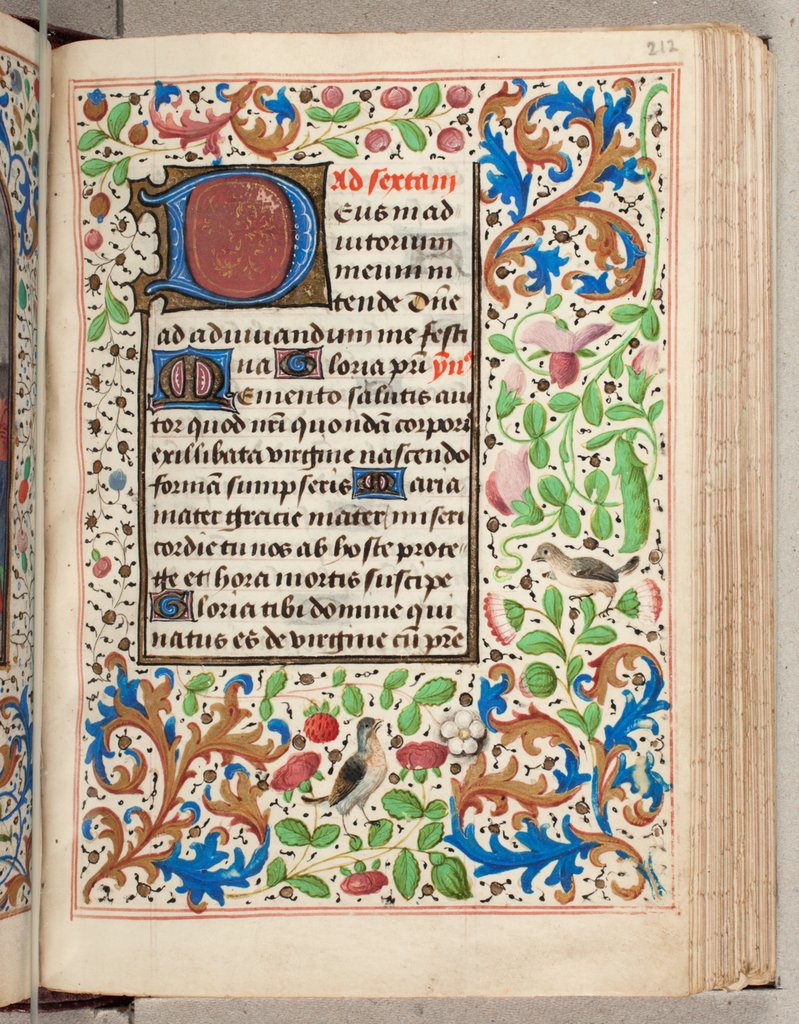 212
Ad sextam
Deus in ad
iutorium
meum in
tende Dn̄e
ad adiuuandum me festi
na Gloria pr̄i yn᷒
Memento salutis auc
tor quod nr̄i quondā corporis
ex illibata virgine nascendo
formā sumpseris Maria
mater gracie mater miseri
cordie tu nos ab hoste prote
ge et hora mortis suscipe
Gloria tibi domine qui
natus es de virgine cū pr̄e